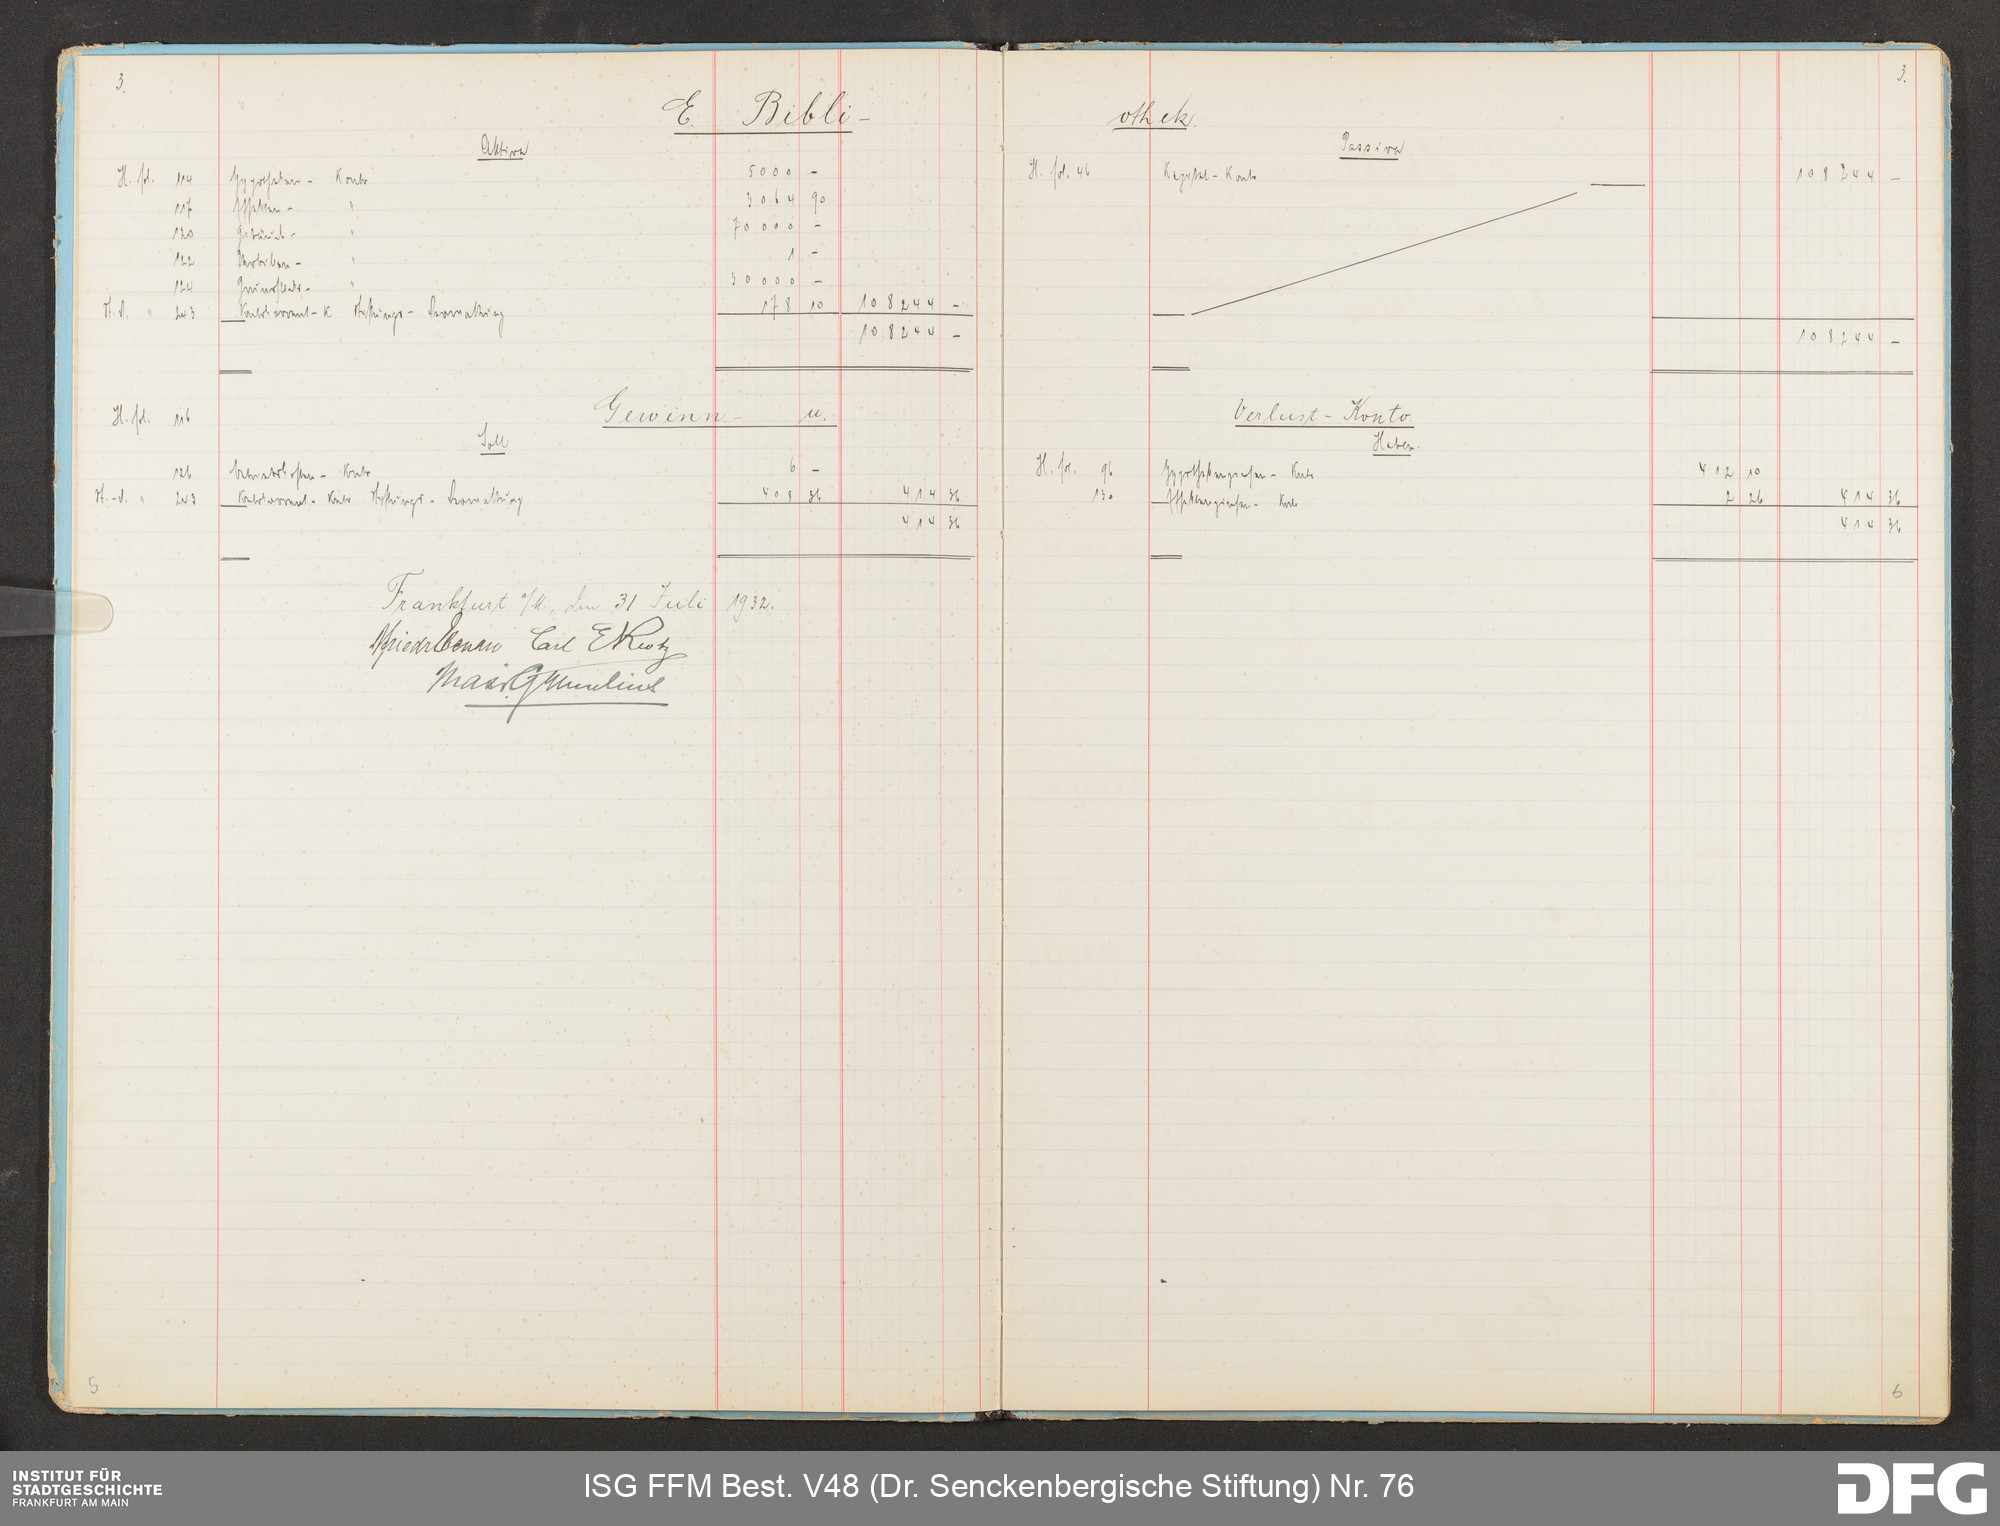 3.
E. Bibli-
Aktiva
H. fol. 114 Hypotheken - Konto 5000 -
117 Effekten - " 3064 90
120 Gebäude - " 70000 -
122 Mobilien - " 1 -
124 Grundstücks - " 30000 -
St. V. " 243 Kontokorrent - K Stiftungs - Verwaltung 178 10 108244 -
108244 -
H. fol. 116 Gewinn - u.
Soll
126 Konto 6 -
St. - V. " 243 Kontokorrent - Konto Stiftungs - Verwaltung 408 36 414 36
414 36
Frankfurt a/M., den 31 Juli 1932.
Carl
5
3.
othek.
Passiva
H. fol. 46 Kapital - Konto 108244 -
108244 -
Verlust - Konto
Haben.
H. fol. 96 Hypothekenzinsen - Konto 412 10
130 Effektenzinsen - Konto 2 26 414 36
414 36
6
INSTITUT FÜR
STADTGESCHICHTE
FRANKFURT AM MAIN
ISG FFM Best. V48 (Dr. Senckenbergische Stiftung) Nr. 76
DFG